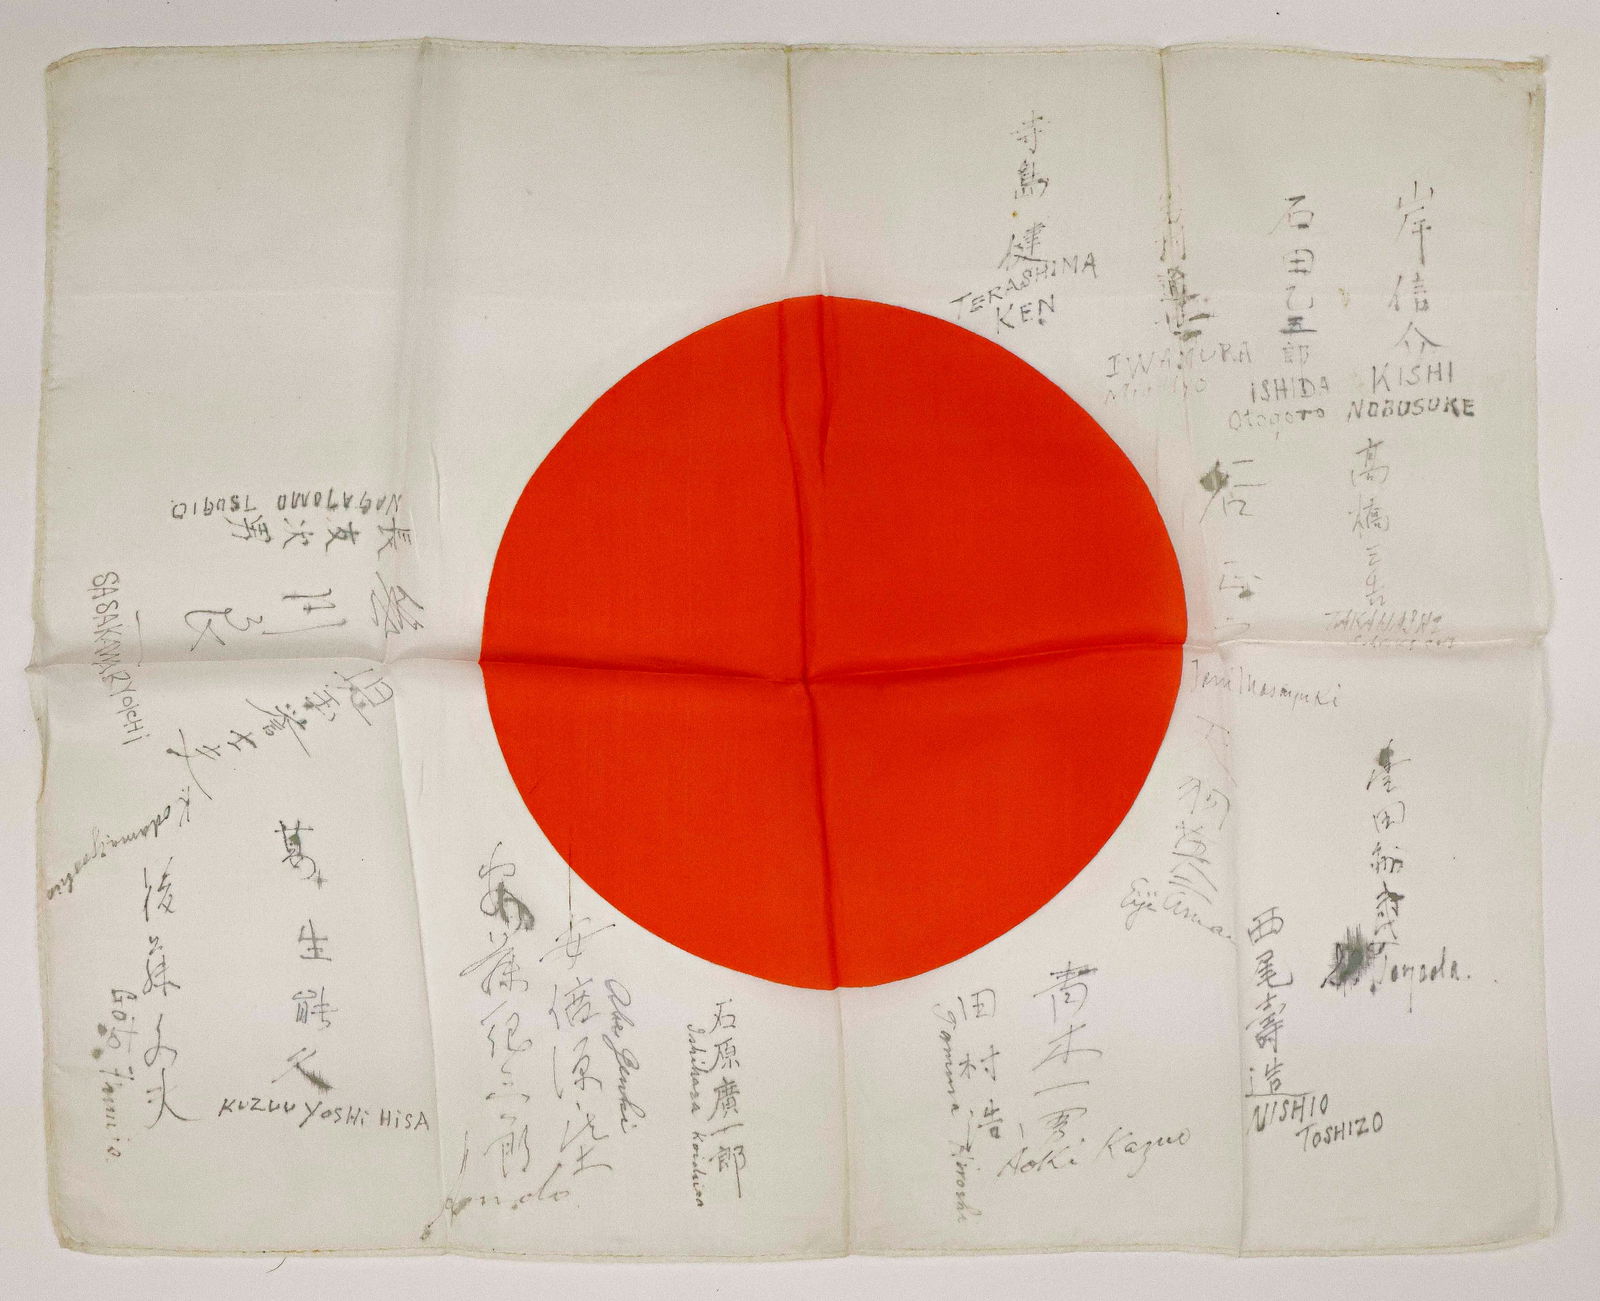 寺島健
TERASHIMA
KEN
IWAMURA
石田乙五郎
ISHIDA
Otogoro
岸信介
KISHI
NOBUSUKE
高橋三吉
TAKAHASHI
SANKICHI
谷正之
Tani Masayuki
天羽英二
Eiji Amau
豊田
Toyoda.
西尾壽造
NISHIO
TOSHIZO
青木一男
Aoki Kazuo
田村浩
Tamura Hiroshi
石原廣一郎
Ishihara Koichiro
安倍源基
Abe Genki
安藤紀三郎
Ando
葛生能久
KUZUU YOSHIHISA
後藤文夫
Goto Fumio.
児玉誉士夫
Kodama Yoshio
笹川良一
SASAKAWA RYOICHI
長友次男
NAGATOMO TSUGIO